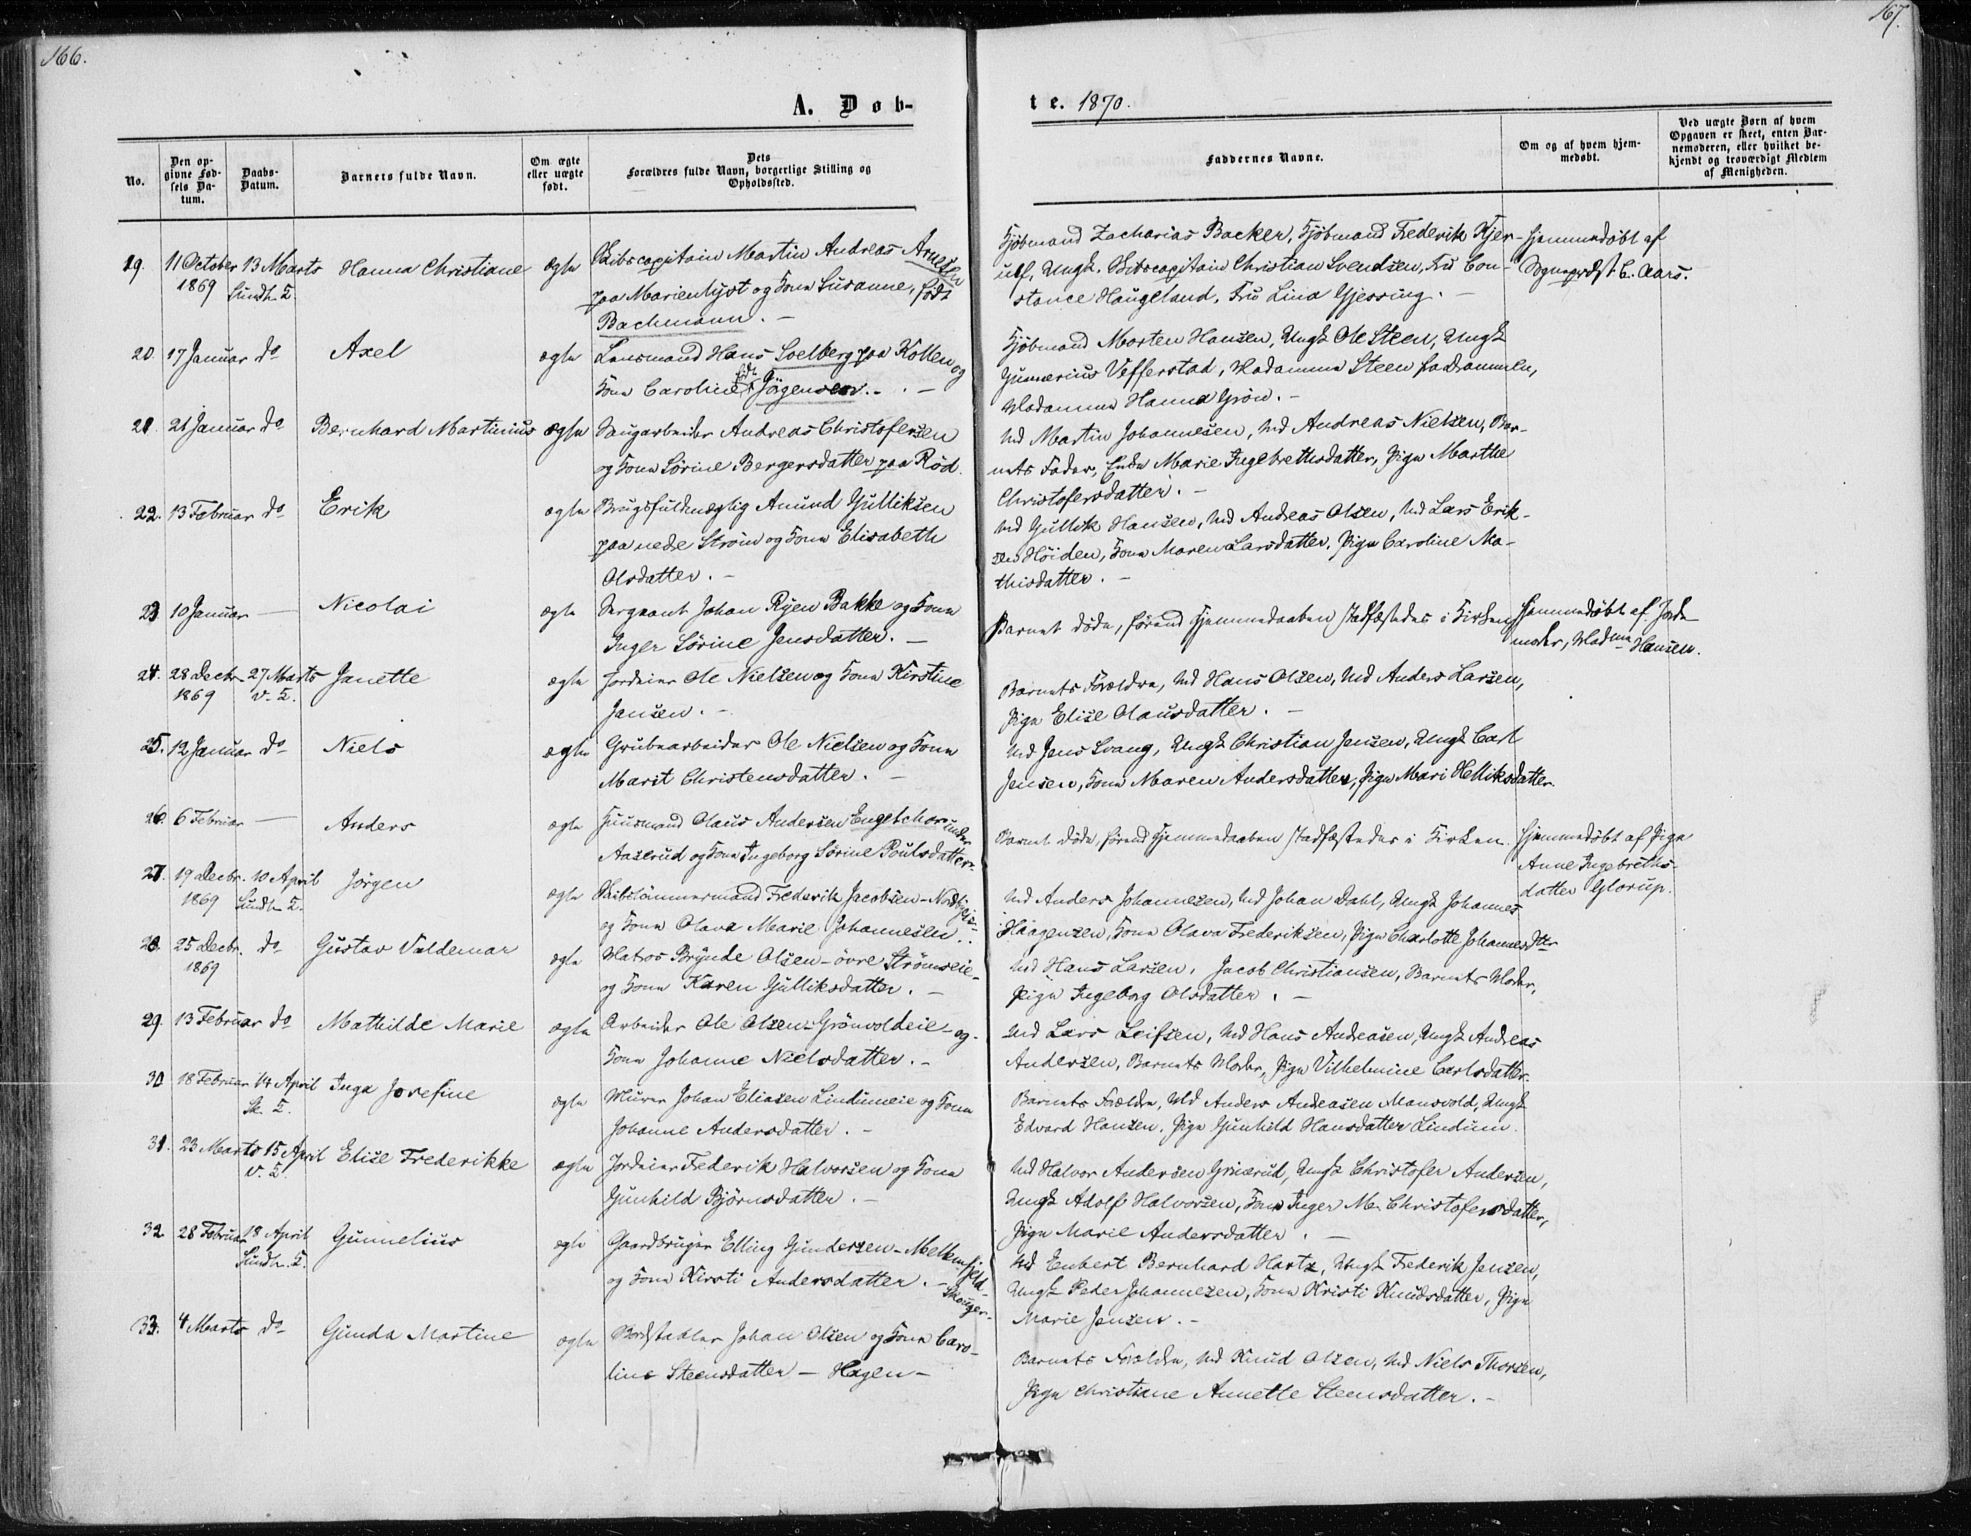 166.
167.
A. Døb-
te. 1870.
No.
Den op-
givne Fød-
sels Da-
tum.
Daabs-
Datum.
Barnets fulde Navn.
Om ægte
eller uægte
født.
Dets
Forældres fulde Navn, borgerlige Stilling og
Opholdssted.
Faddernes Navne.
Om og af hvem hjem-
medøbt.
Ved uægte Børn af hvem
Opgaven er skeet, enten Bar-
nemoderen, eller hvilket be-
kjendt og troværdigt Medlem
af Menigheden.
19. 11 October 13 Marts Hanna Christiane ægte Skibscapitain Martin Andreas Arnesen
1869 Sundh. T.
paa Marienlyst og Kone Susanne, født
Bachmann. -
Kjøbmand Zacharias Backer, Kjøbmand Frederik Kjer-
ulf, Ungk. Skibscapitain Christian Svendsen, Fru Con-
stance Haugeland, Fru Lina Gjessing. -
Hjemmedøbt af
Sogneprdst C. Aars.
20. 17 Januar do Axel ægte Lensmand Hans Soelberg paa Kollen og
Kone Caroline f. Jørgensen. -
Kjøbmand Morten Hansen, Ungk Ole Steen, Ungk
Gunerius Vefferstad, Madamme Steen
Madamme Hanna Grøn. -
21. 21 Januar do Bernhard Martinius ægte Saugarbeider Andreas Christofersen
og Kone Sørine Bergersdatter paa Rød.
Md Martin Johannesen, Md Andreas Nielsen, Bar-
nets Fader, Enke Marie Ingebrethsdatter, Pige Marthe
Christofersdatter. -
22. 13 Februar do Erik ægte Brugsfuldmægtig Amund Gulliksen
paa nedre Strøm og Kone Elisabeth
Olsdatter. -
Md Gullik Hansen, Md Andreas Olsen, Md Lars Erik-
sen Høiden, Kone Maren Larsdatter, Pige Caroline Ma-
thisdatter. -
23 10 Januar — Nicolai ægte Sergeant Johan Ryen Bakke og Kone
Inger Sørine Jensdatter. -
Barnet døde, førend Hjemmedaaben stadfæstedes i Kirken
Hjemmedøbt af Jorde-
moder, Madme Hansen.
24. 28 Decbr 27 Marts Janette ægte Jordeier Ole Nielsen og Kone Kirstine
1869 V. T.
Jansen. -
Barnets Forældre, Md Hans Olsen, Md Anders Larsen,
Pige Elise Olausdatter. -
25. 12 Januar do Niels ægte Grubearbeider Ole Nielsen og Kone
Marit Christensdatter. -
Md Jens Svang, Ungk Christian Jensen, Ungk Carl
Jensen, Kone Maren Andersdatter, Pige Mari Helliksdatter.
26. 6 Februar — Anders ægte Huusmand Olaus Andersen Engelchor under
Aaserud og Kone Ingeborg Sørine Poulsdatter.
Barnet døde, førend Hjemmedaaben stadfæstedes i Kirken.
Hjemmedøbt af Pige
Anne Ingebreths-
datter Glorup.
27. 19 Decbr. 10 April Jørgen ægte Skibstømmermand Frederik Jacobsen-
1869 Sundh. T.
og Kone Olava Marie Johannesen.
Md Anders Johannesen, Md Johan Dahl, Ungk Johannes
Haagensen, Kone Olava Frederiksen, Pige Charlotte Johannesdtr
28. 25 Decbr. do Gustav Valdemar ægte Matros Brynde Olsen - øvre Strømseie-
1869
og Kone Karen Gulliksdatter. -
Md Hans Larsen, Jacob Christiansen, Barnets Moder,
Pige Ingeborg Olsdatter. -
29. 13 Februar do Mathilde Marie ægte Arbeider Ole Olsen-Grønvoldeie-og-
Kone Johanne Nielsdatter. -
Md Lars Leifsen, Md Hans Andreasen, Ungk Andreas
Andersen, Barnets Moder, Pige Vilhelmine Carlsdatter.
30 18 Februar 14 April Inga Josefine ægte Murer Johan Eliasen Lindumeie og Kone
Sk. T.
Johanne Andersdatter. -
Barnets Forældre, Md Anders Andreasen Mansvold, Ungk
Edvard Hansen, Pige Gunhild Hansdatter Lindum.
31. 23 Marts 15 April Elise Frederikke ægte Jordeier Frederik Halvorsen og Kone
V. T.
Gunhild Bjørnsdatter. -
Md Halvor Andersen Grinerud, Ungk Christofer Andersen,
Ungk Adolf Halvorsen, Kone Inger M. Christofersdatter,
Pige Marie Andersdatter. -
32 28 Februar 18 April Gunnelius ægte Gaardbruger Elling Gundersen-Melkenfjeld-
Sundh. T. Skouger.
og Kone Kirsti Andersdatter. -
Md Enbert Bernhard Hartz, Ungk Frederik Jensen,
Ungk Peder Johannesen, Kone Kristi Knudsdatter, Pige
Marie Jensen. -
33. 4 Marts do Gunda Martine ægte Bordstabler Johan Olsen og Kone Caro-
line Steensdatter - Hagen -
Barnets Forældre, Md Knud Olsen, Md Niels Thorsen,
Pige Christiane Annette Steensdatter. -